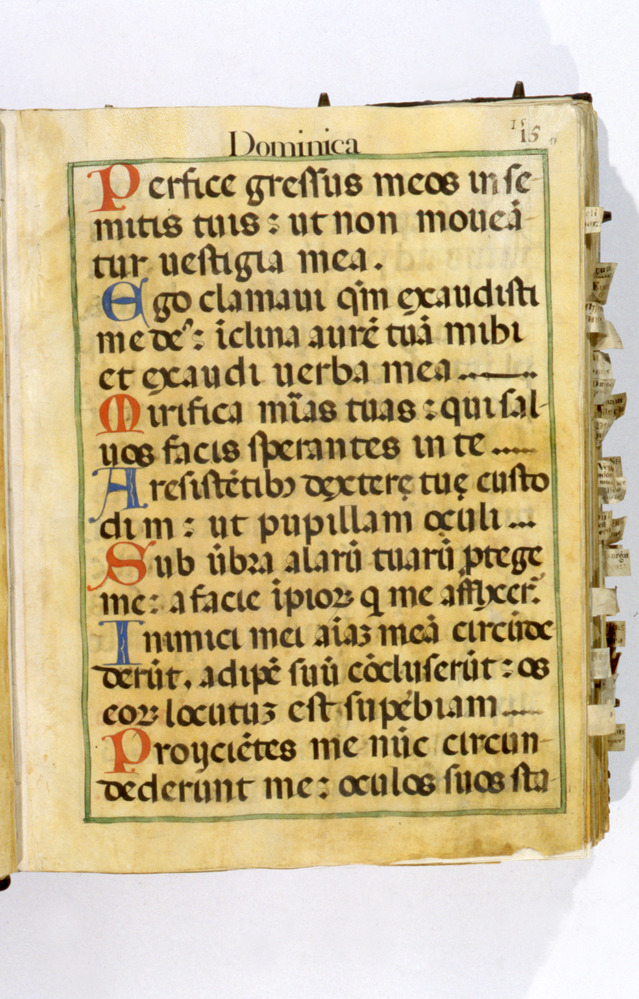 Dominica
15
15
Perfice gressus meos in se-
mitis tuis : ut non moueã
tur uestigia mea .
Ego clamaui qm̃ exaudisti
me deꝰ : ĩclina aurẽ tuã mihi
et exaudi uerba mea
Mirifica mĩas tuas : qui sal-
uos facis sperantes in te
A resistẽtibꝯ dexterę tuę custo
di m : ut pupillam oculi
Sub ũbra alarũ tuarũ ꝓtege
me : a facie ĩpioꝝ q me afflixer̃.
Inimici mei aĩaꝫ meã circũde
derũt , adipẽ suũ cõcluserũt : os
eoꝝ locutuꝫ est supẽbiam
Proijciẽtes me nũc circun-
dederunt me : oculos suos sta-